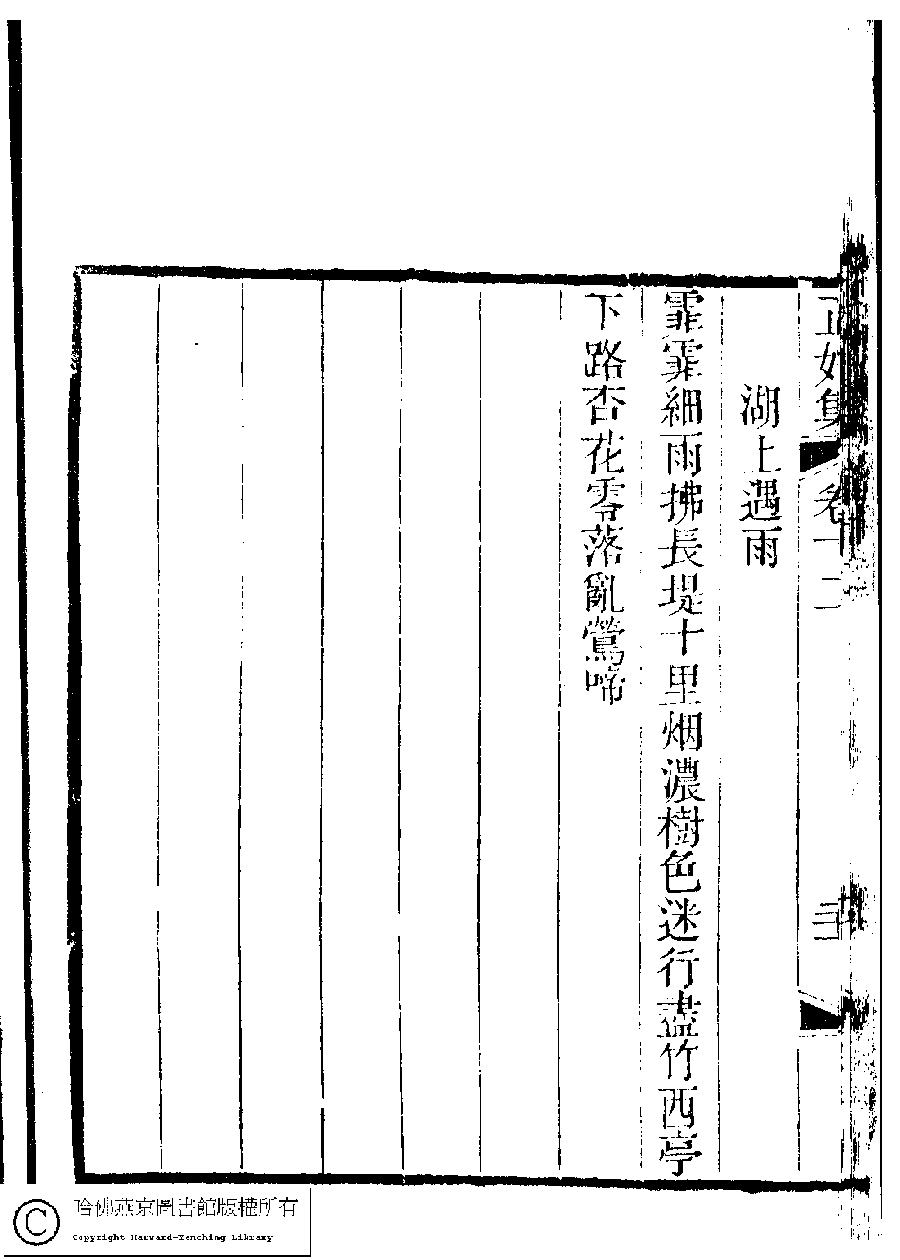 湖上遇雨
霏霏細雨拂長堤十里烟濃樹色迷行盡竹西亭
下路杏花零落亂鶯啼
哈佛燕京圖書館版權所有
Copyright Harvard-Yenching Library